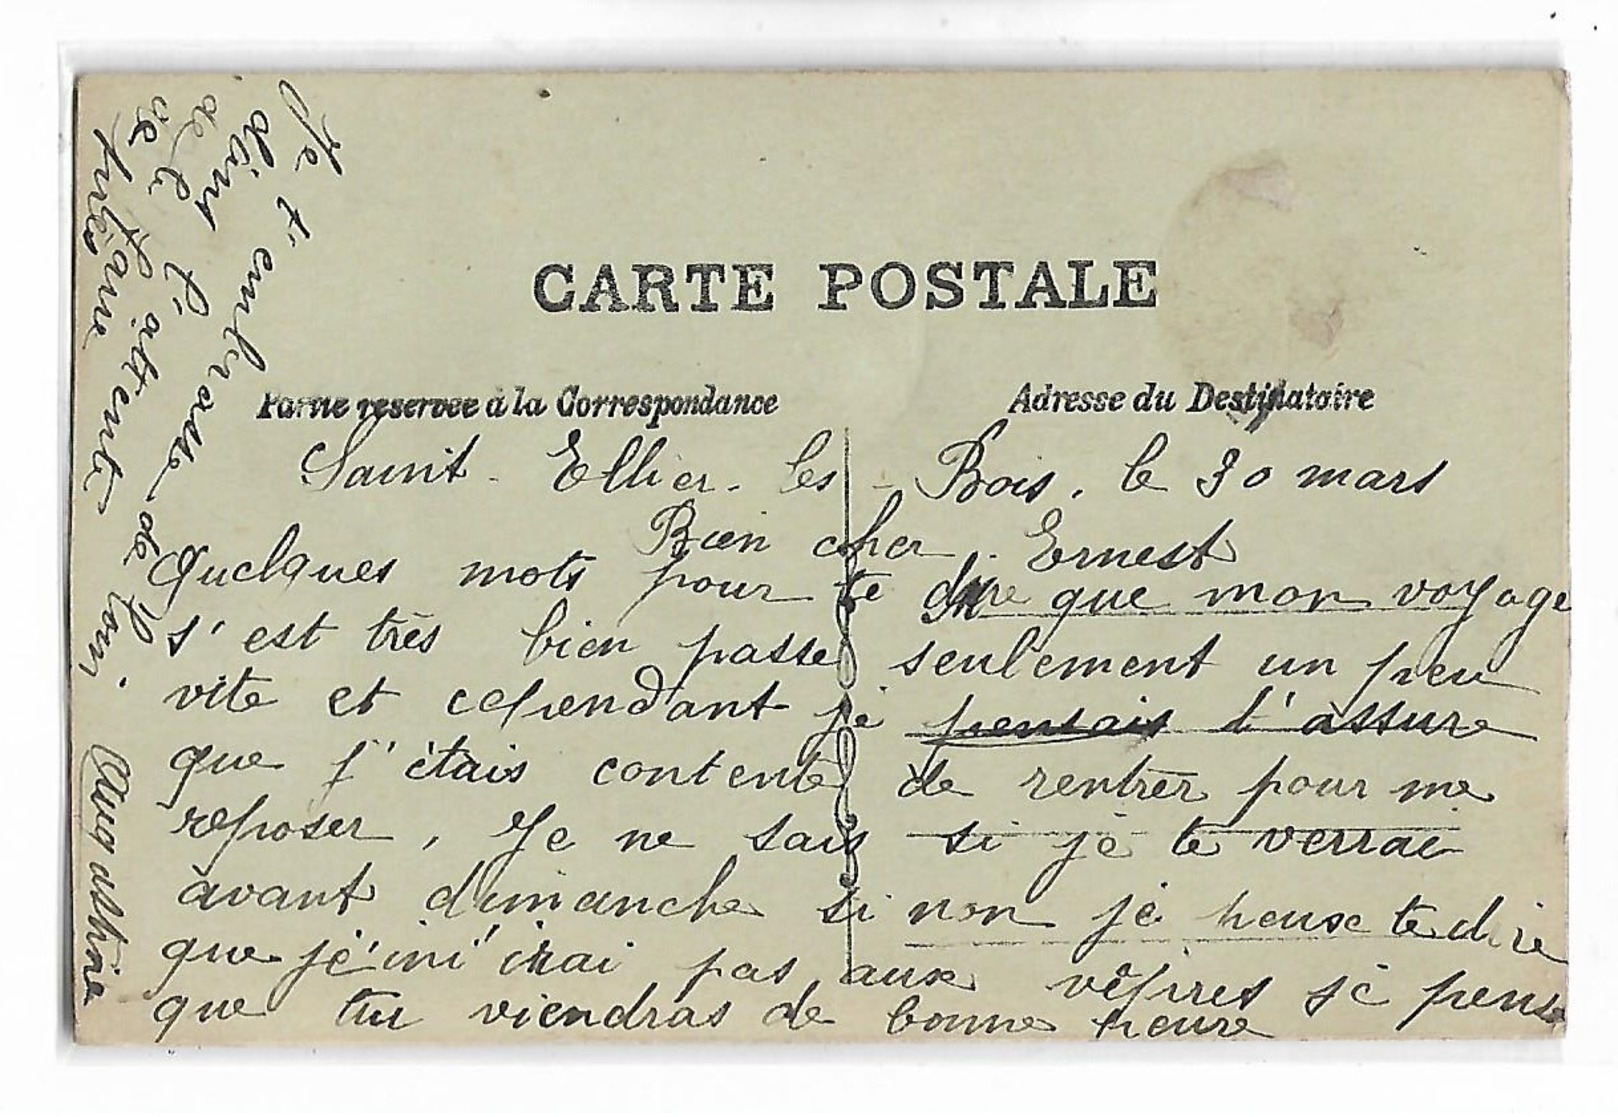 CARTE POSTALE
Partie réservée à la Correspondance
Adresse du Destinataire
Saint-Ellier-les-Bois, le 30 mars
Bien cher Ernest
Quelques mots pour te dire que mon voyage
s'est très bien passé seulement un peu
vite et cependant je pensais t'assure
que j'étais contente de rentrer pour me
reposer, Je ne sais si je te verrai
avant dimanche si non je pense te dire
que je n'irai pas aux vêpres je pense
que tu viendras de bonne heure
Je t'embrasse de loin
dans l'attente
de le
ve
Augustine